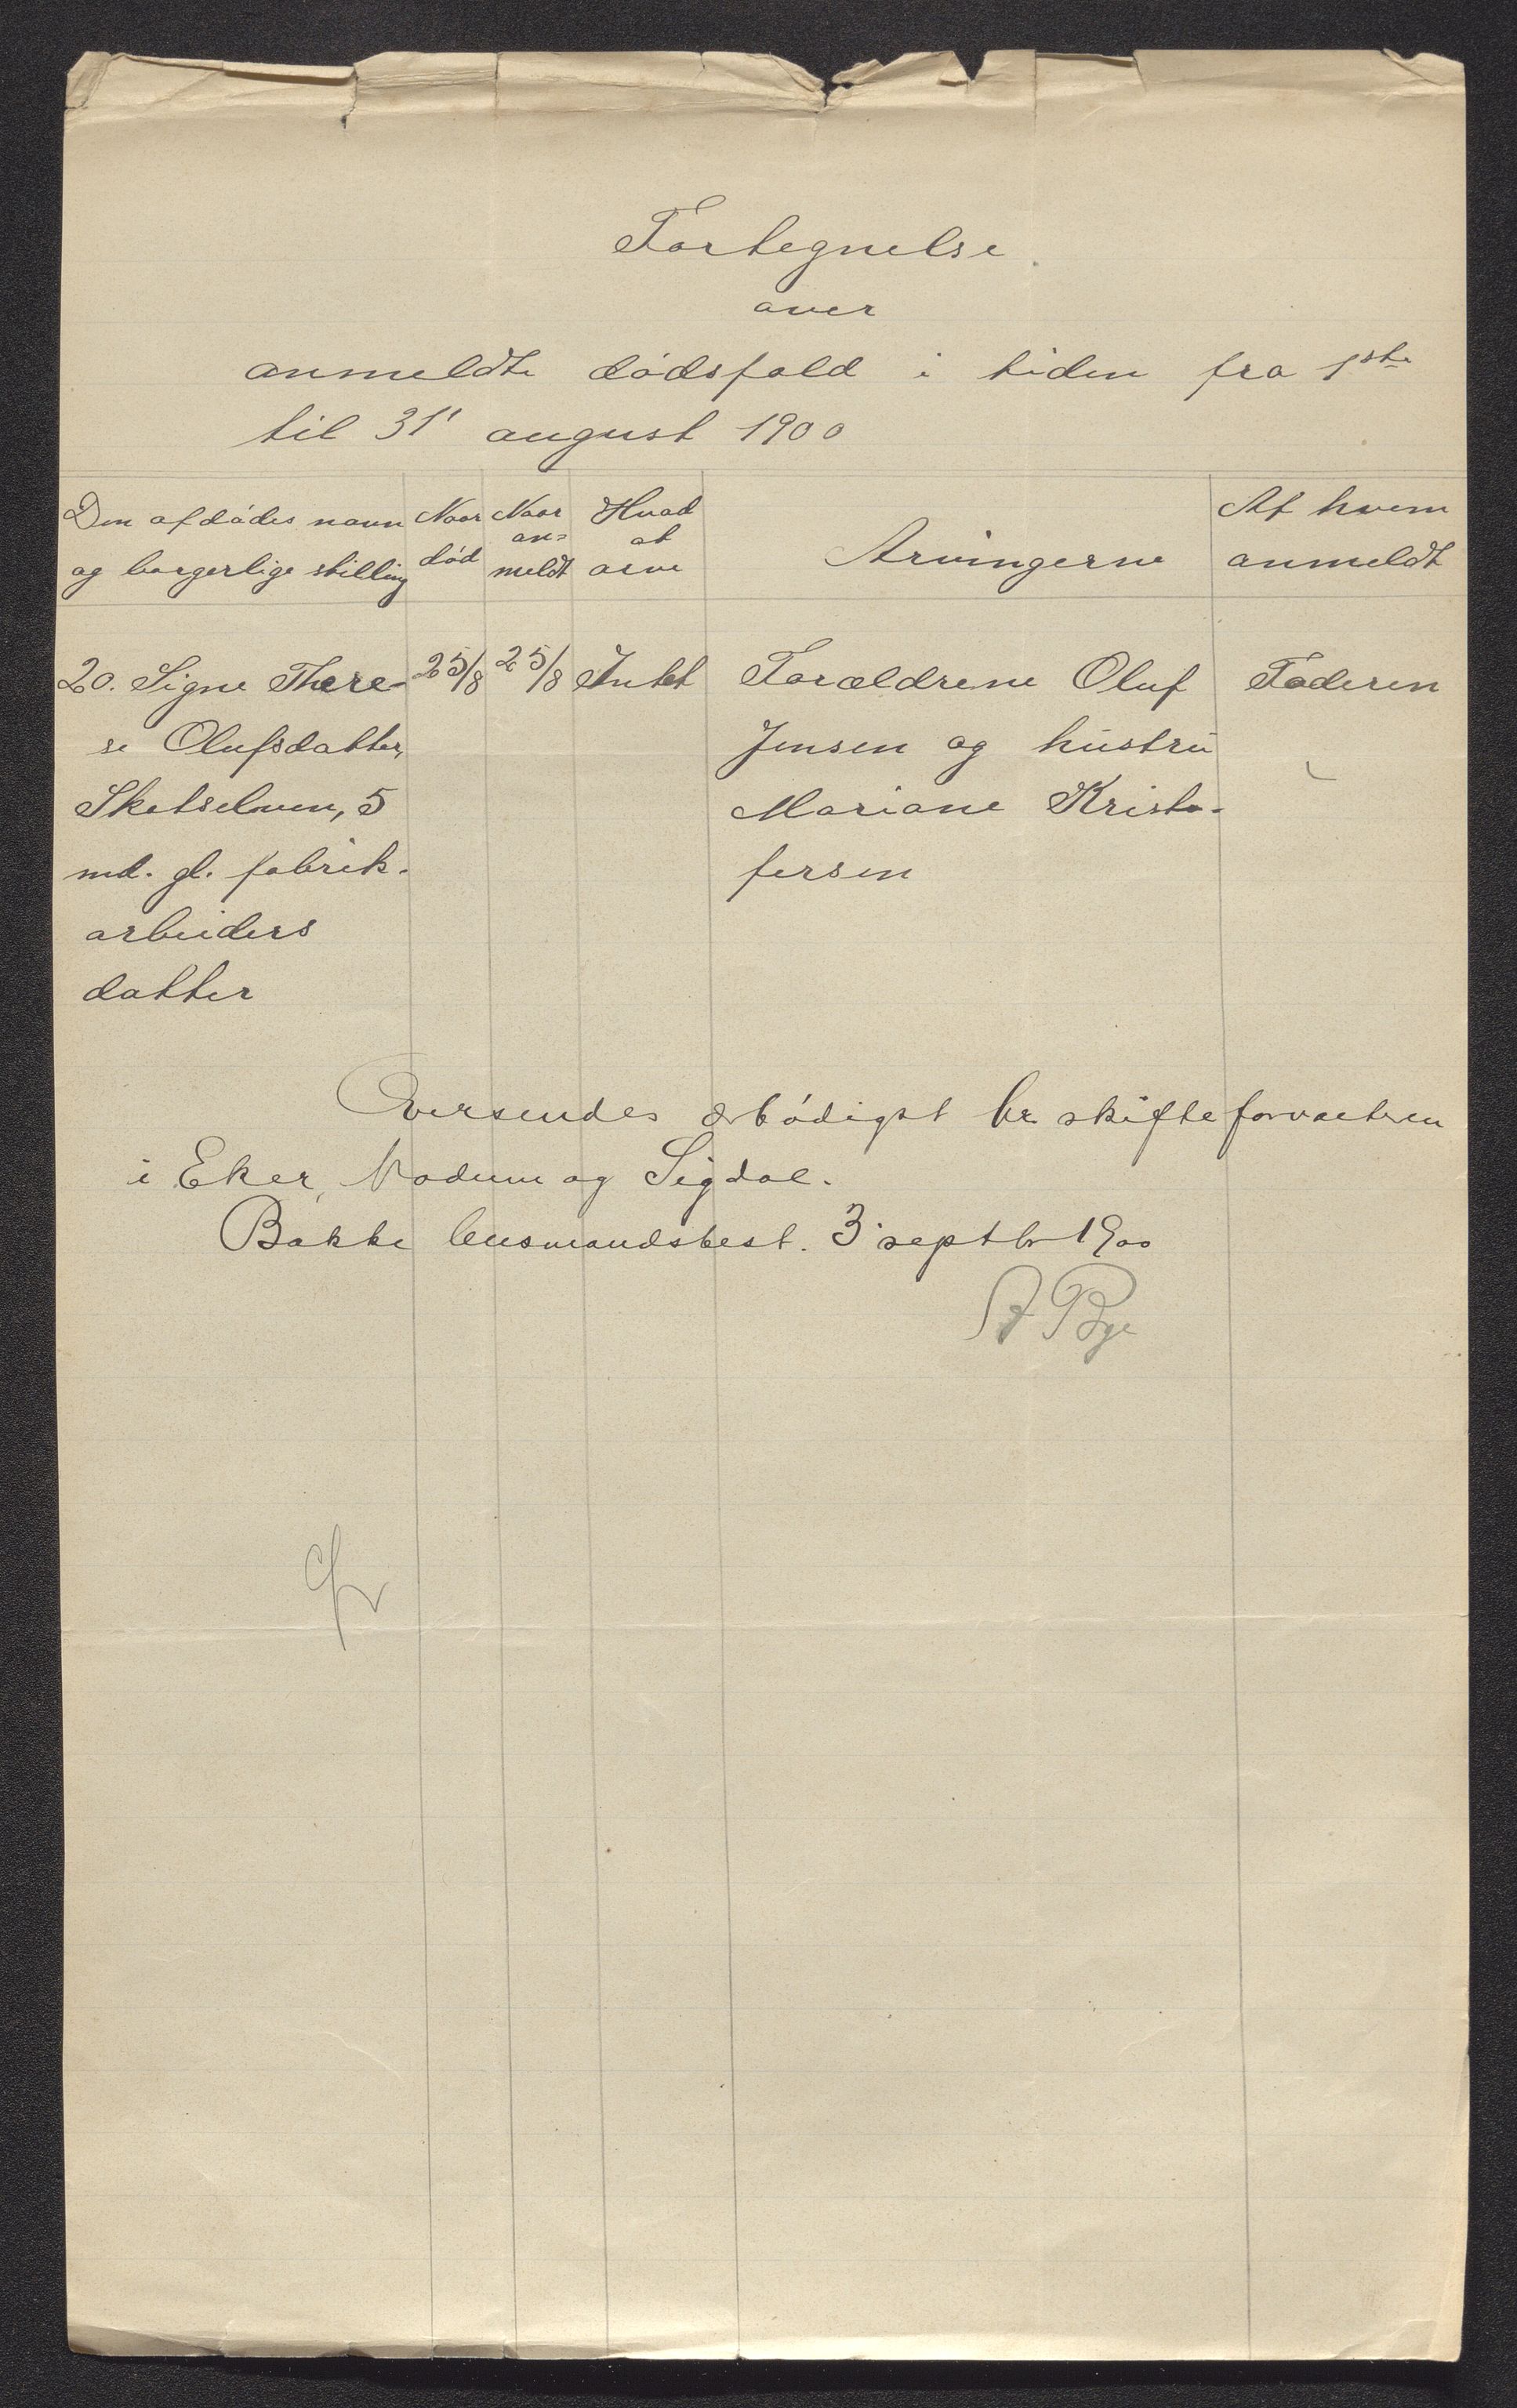 Fortegnelse
over
anmeldte dødsfald i tiden fra 1ste
til 31' august 1900
Den afdødes navn og borgerlige stilling
Naar død
Naar an= meldt
Hvad at arve
Arvingerne
Af hvem anmeldt
20. Signe There-
se Olufsdatter,
Skotselven, 5
md. gl. fabrik-
arbeiders
datter
25/8
25/8
Intet
Forældrene Oluf
Jensen og hustru
Mariane Kristo-
fersen
Faderen
Oversendes ærbødigst hr. skifteforvalteren
i Eker, Modum og Sigdal.
Bakke lensmandsbest. 3' septbr 1900
A Bye